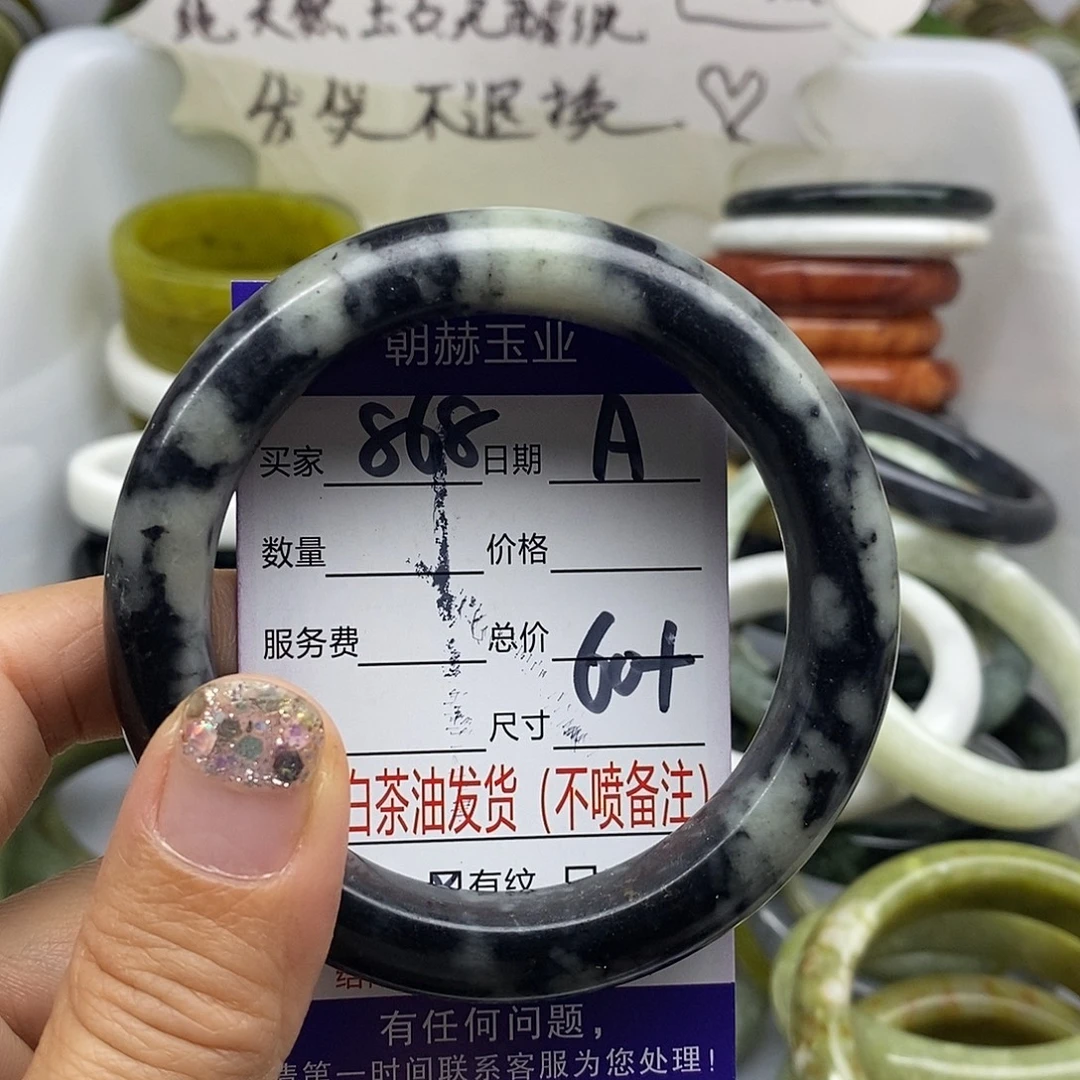 纯天然玉石无酸洗
售后不退换
朝赫玉业
买家 868 日期 A
数量 价格
服务费 总价 60+
尺寸
白茶油发货（不喷备注）
有纹
有任何问题，
请第一时间联系客服为您处理！